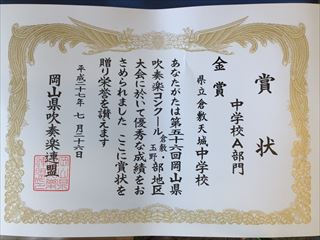 賞状
中学校A部門
金賞
県立倉敷天城中学校
あなたがたは第五十六回岡山県
吹奏楽コンクール倉敷・玉野部地区
大会に於いて優秀な成績をお
さめられました ここに賞状を
贈り栄誉を讃えます
平成二十七年 七月二十六日
岡山県吹奏楽連盟